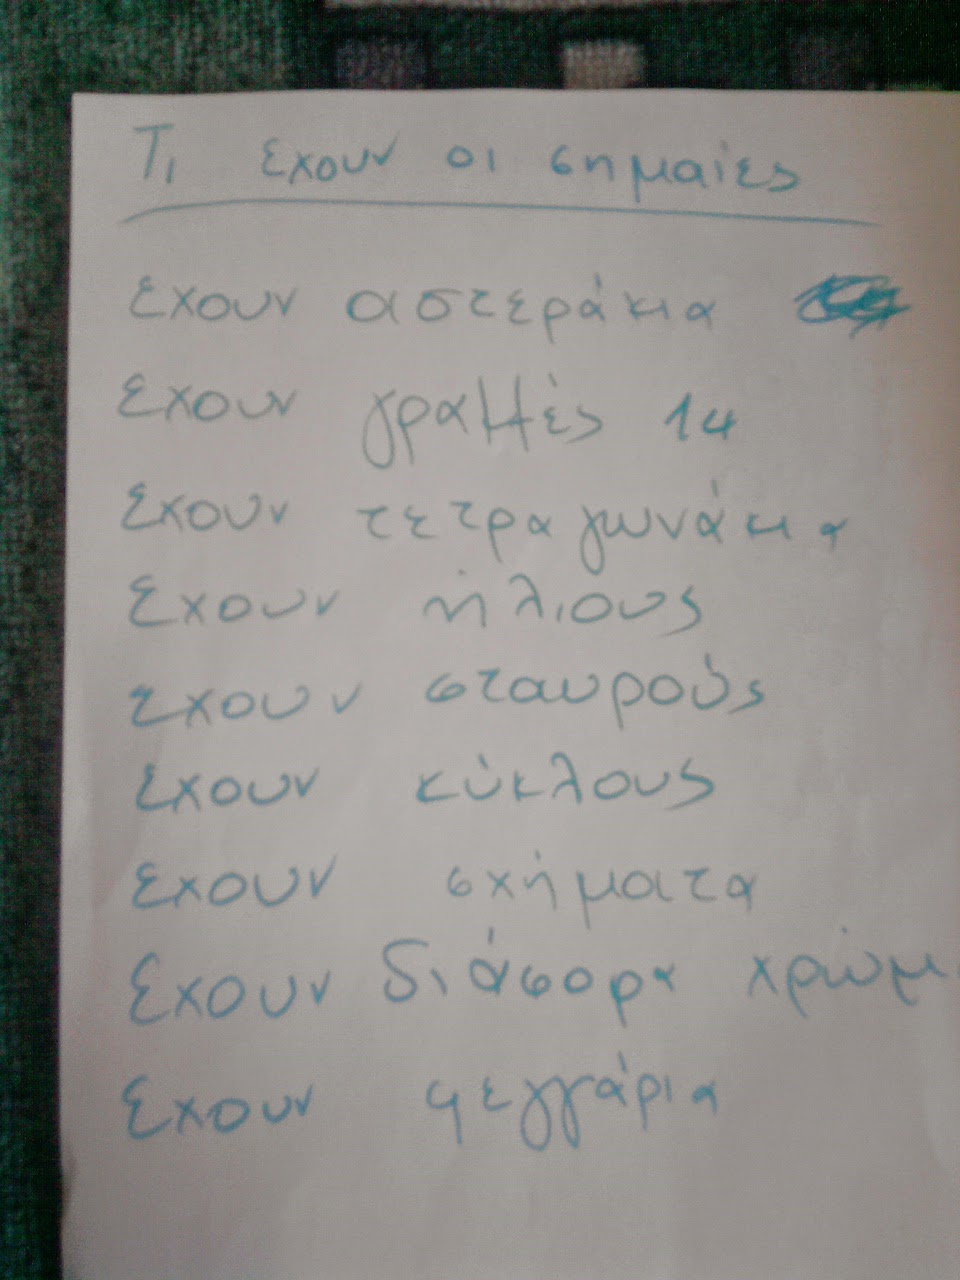 Τι έχουν οι σημαίες
Έχουν αστεράκια
Έχουν γραμμές 14
Έχουν τετραγωνάκια
Έχουν ήλιους
Έχουν σταυρούς
Έχουν κύκλους
Έχουν σχήματα
Έχουν διάφορα χρώμ
Έχουν φεγγάρια